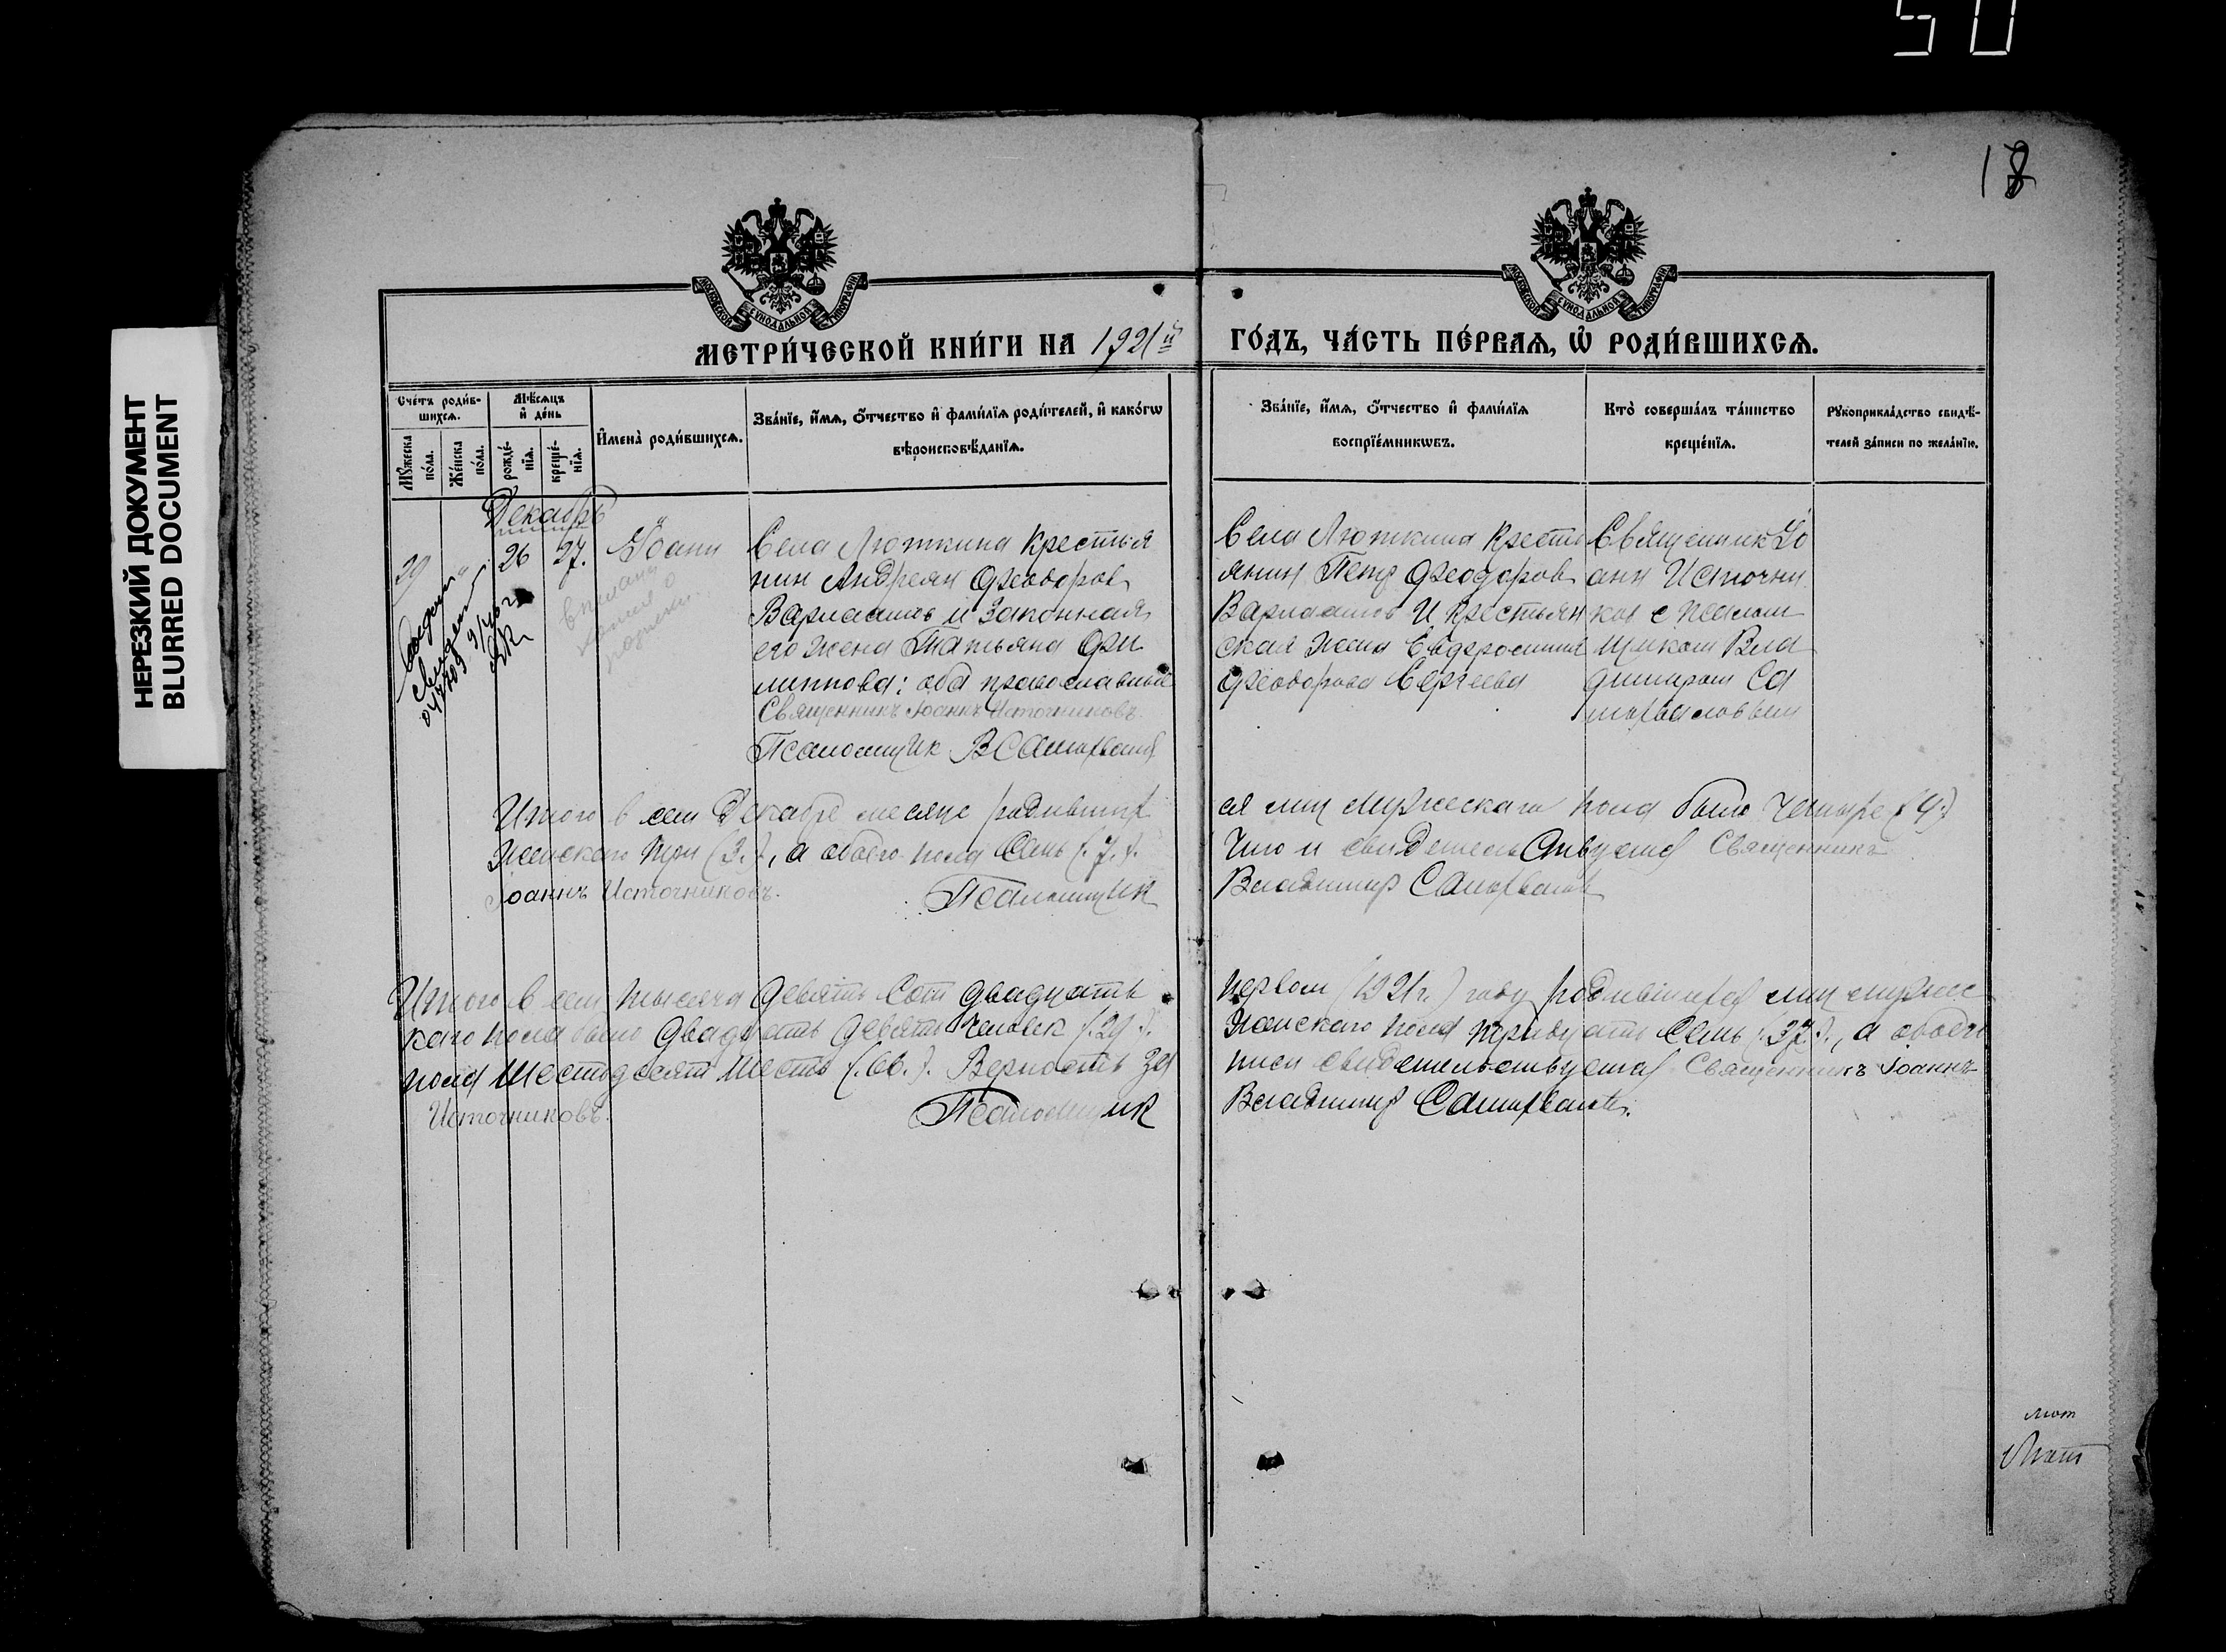 50
18
НЕРЕЗКИЙ ДОКУМЕНТ
BLURRED DOCUMENT
МОСКОВСКОЙ СѴНОДАЛЬНОЙ ТИПОГРАФІИ
МОСКОВСКОЙ СѴНОДАЛЬНОЙ ТИПОГРАФІИ
МЕТРИ́ЧЕСКОЙ КНИ́ГИ НА 1921й
ГО́ДЪ, ЧА́СТЬ ПЕ́РВАѦ, Ѡ҆ РОДИ́ВШИХСѦ.
Сче́тъ роди́в-
шихсѧ.
Мꙋ́жеска
по́ла.
Же́нска
по́ла.
Мѣ́сѧцъ
и҆ де́нь
рожде́-
нїѧ.
креще́-
нїѧ.
И҆мена̀ роди́вшихсѧ.
Зва́нїе, и҆́мѧ, ѻ҆́тчество и҆ фами́лїѧ роди́телей, и҆ како́гѡ
вѣроисповѣ́данїѧ.
Зва́нїе, и҆́мѧ, ѻ҆́тчество и҆ фами́лїѧ
воспрїе́мникѡвъ.
Кто̀ соверша́лъ та́инство
креще́нїѧ.
Рꙋкоприкла́дство свидѣ́-
телей за́писи по жела́нїю.
Декабрь
29 " 26 27. Иоанн
Села Люткина крестья
нин Андреян Феодоров
Варлашов и законная
его жена Татьяна Фи
липпова: оба православные
Священникъ Іоаннъ Источниковъ.
Псаломщик В Самарванов
Села Люткина крести
янин Петр Феодоров
Варлашов и крестьян
ская жена Евдросиния
Феодорова Сергеева
Священник Ио
анн Источни
ков с псалом
щиком Вла
димиром Са
выдан
свидет
9/VIII
вписана
копия о
рождени
Итого в сем Декабре месяце родивших
ся лиц мужескаго пола было четыре (4.)
женскаго три (3.), а обоего пола семь (7.).
Что и свидетельствуем Священникъ
Іоаннъ Источниковъ. Псаломщик
Владимир
Итого в сем тысяча девять сот двадцать
первом (1921г.) году родившихся лиц мужес
каго пола было двадцать девять человек (29).
женскаго пола тридцать семь (37.), а обоего
пола шестьдесят шесть (66.). Верность за
писи свидетельствуем Священникъ Іоаннъ
Источниковъ. Псаломщик
Владимир